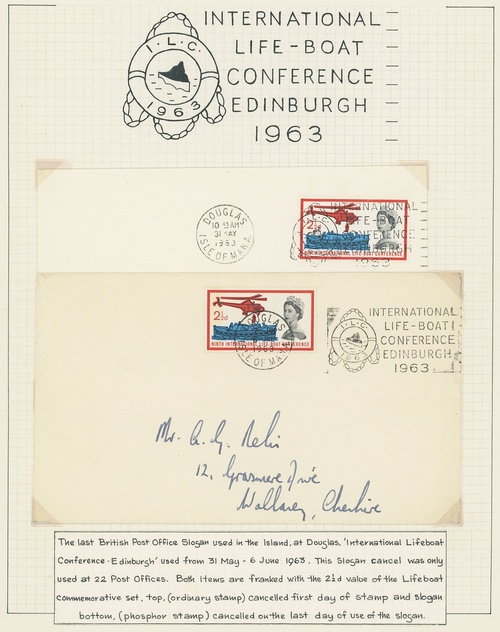 INTERNATIONAL
LIFE-BOAT
CONFERENCE
EDINBURGH
1963
I.L.C.
1963
DOUGLAS
31 MAY
1963
ISLE OF MAN
2½d
INTERNATIONAL
LIFE-BOAT
CONFERENCE
EDINBURGH
1963
NINTH INTERNATIONAL LIFE-BOAT CONFERENCE
2½d
DOUGLAS
1963
ISLE OF MAN
NINTH INTERNATIONAL LIFE-BOAT CONFERENCE
I.L.C.
1963
INTERNATIONAL
LIFE-BOAT
CONFERENCE
EDINBURGH
1963
Mr. A. G.
12, Grasmere Drive
Wallasey, Cheshire
The last British Post Office Slogan used in the Island, at Douglas, 'International Lifeboat
Conference - Edinburgh' used from 31 May - 6 June 1963. This Slogan cancel was only
used at 22 Post Offices. Both items are franked with the 2½d value of the Lifeboat
commemorative set, top, (ordinary stamp) cancelled first day of stamp and slogan
bottom, (phosphor stamp) cancelled on the last day of use of the slogan.